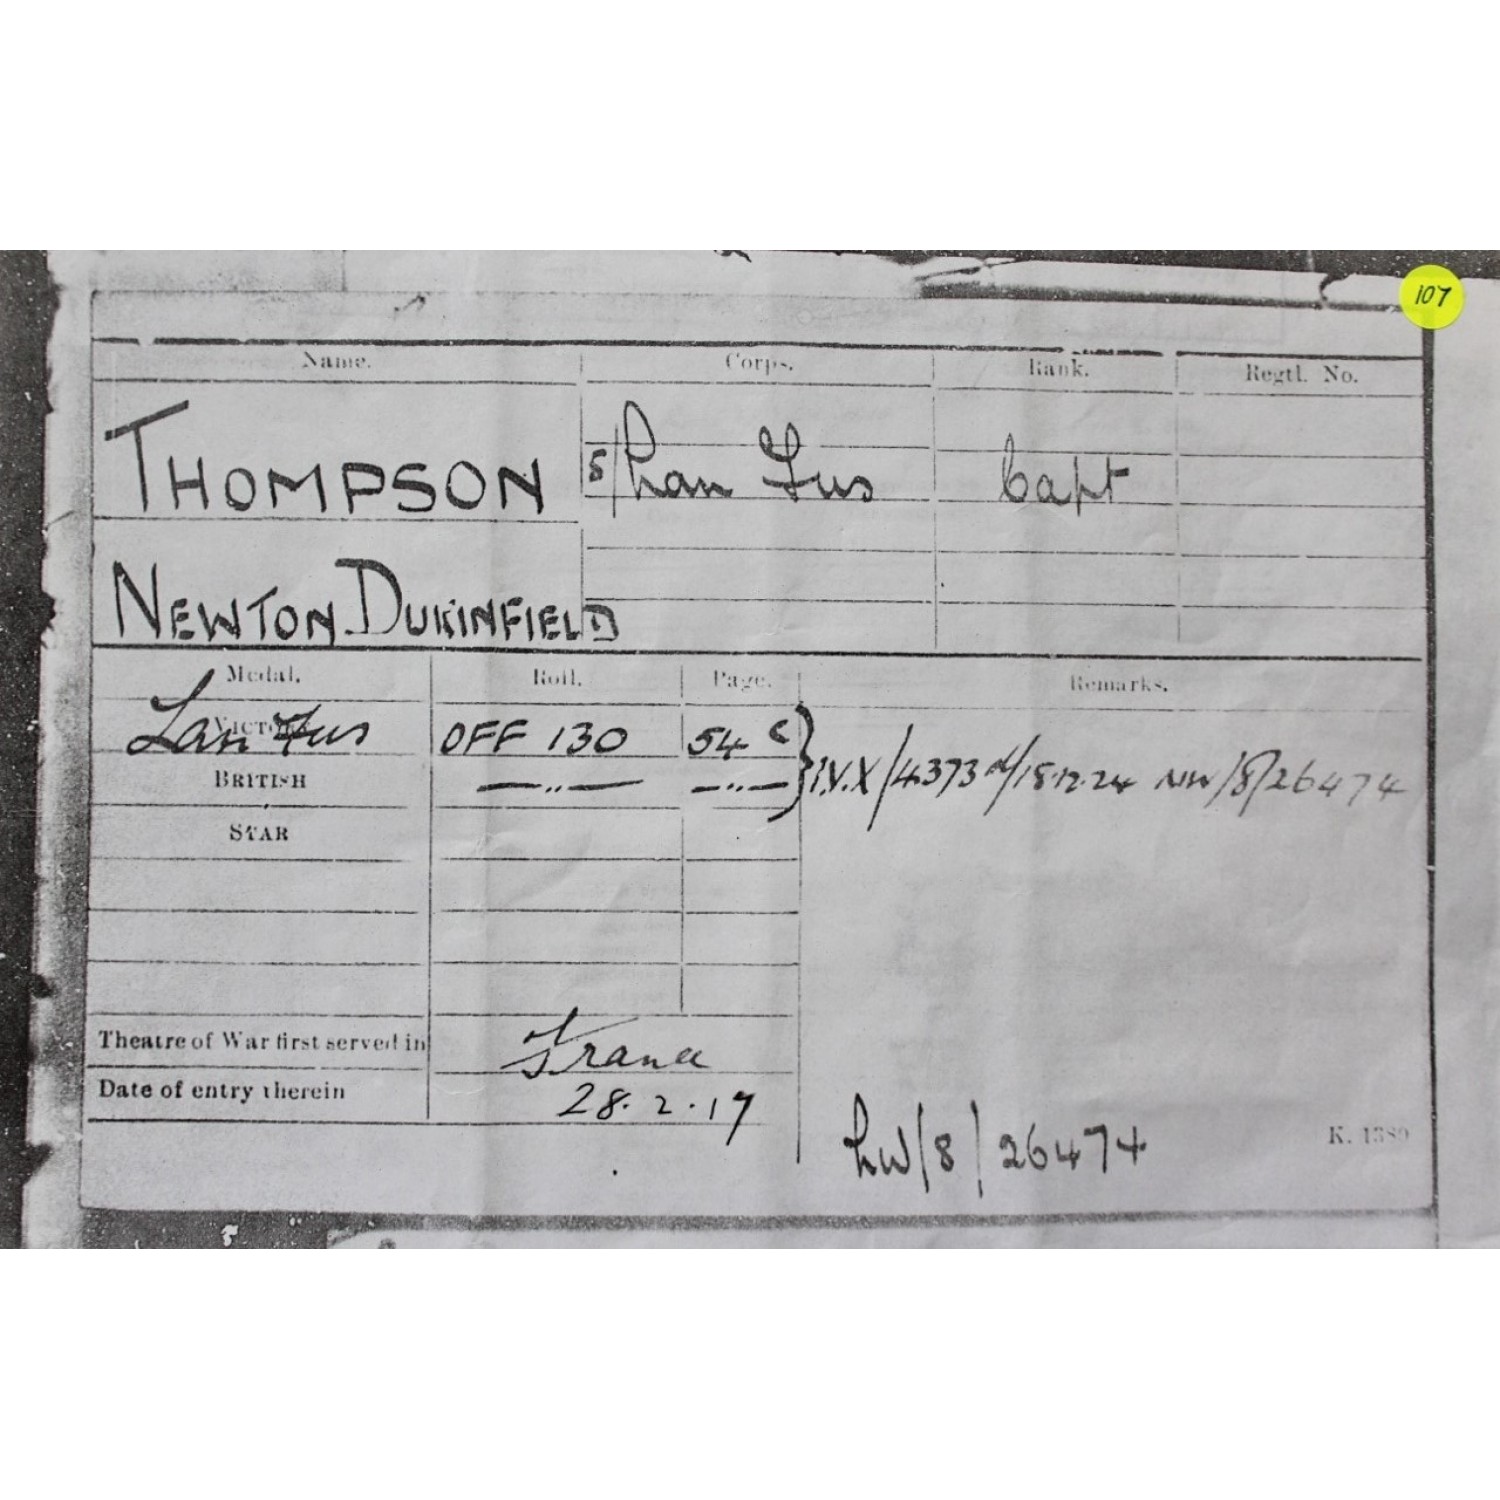 107
Name. Corps. Rank. Regtl. No.
THOMPSON 5/Lan Fus Capt
NEWTON DUKINFIELD
Medal. Roll. Page. Remarks.
VICTORY Lan Fus OFF 130 54 C } I.V.X/4373 d/18.12.24 NW/8/26474
BRITISH —..— —..—
STAR
Theatre of War first served in France
Date of entry therein 28.2.17
NW/8/26474
K. 1380